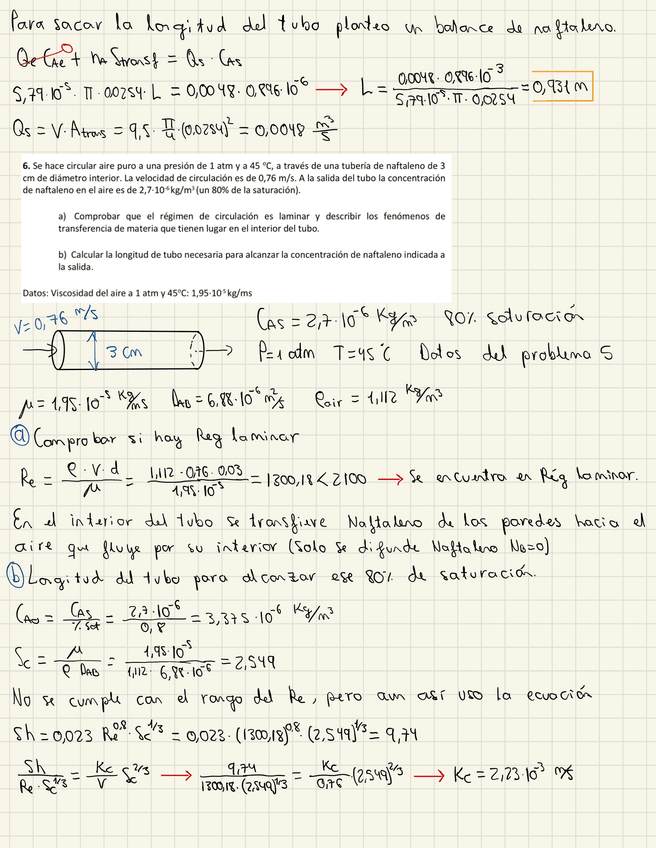 Para sacar la longitud del tubo planteo un balance de naftaleno.
Qe CAe + nA Stransf = Qs · CAs
0
5,79·10⁻⁵ · π · 0,0254 · L = 0,0048 · 0,896·10⁻⁶ → L = 0,0048 · 0,896·10⁻³ / 5,79·10⁻⁵ · π · 0,0254 = 0,931 m
Qs = V · Atrans = 9,5 · π/4 · (0,0254)² = 0,0048 m³/s
6. Se hace circular aire puro a una presión de 1 atm y a 45 ºC, a través de una tubería de naftaleno de 3
cm de diámetro interior. La velocidad de circulación es de 0,76 m/s. A la salida del tubo la concentración
de naftaleno en el aire es de 2,7·10⁻⁶ kg/m³ (un 80% de la saturación).
a) Comprobar que el régimen de circulación es laminar y describir los fenómenos de
transferencia de materia que tienen lugar en el interior del tubo.
b) Calcular la longitud de tubo necesaria para alcanzar la concentración de naftaleno indicada a
la salida.
Datos: Viscosidad del aire a 1 atm y 45ºC: 1,95·10⁻⁵ kg/ms
V = 0,76 m/s
3 cm
CAS = 2,7·10⁻⁶ Kg/m³ 80% saturación
P = 1 atm T = 45 ºC Datos del problema 5
μ = 1,95·10⁻⁵ Kg/ms DAB = 6,88·10⁻⁶ m²/s ρair = 1,112 Kg/m³
a Comprobar si hay Reg laminar
Re = ρ · V · d / μ = 1,112 · 0,76 · 0,03 / 1,95·10⁻⁵ = 1300,18 < 2100 → Se encuentra en Rég laminar.
En el interior del tubo se transfiere Naftaleno de las paredes hacia el
aire que fluye por su interior (solo se difunde Naftaleno NB=0)
b Longitud del tubo para alcanzar ese 80% de saturación.
CAO = CAS / % sat = 2,7·10⁻⁶ / 0,8 = 3,375·10⁻⁶ Kg/m³
Sc = μ / ρ DAB = 1,95·10⁻⁵ / 1,112 · 6,88·10⁻⁶ = 2,549
No se cumple con el rango del Re, pero aun así uso la ecuación
Sh = 0,023 Re^0,8 · Sc^1/3 = 0,023 · (1300,18)^0,8 · (2,549)^1/3 = 9,74
Sh / Re · Sc^1/3 = Kc / V Sc^2/3 → 9,74 / 1300,18 · (2,549)^1/3 = Kc / 0,76 · (2,549)^2/3 → Kc = 2,23·10⁻³ m/s